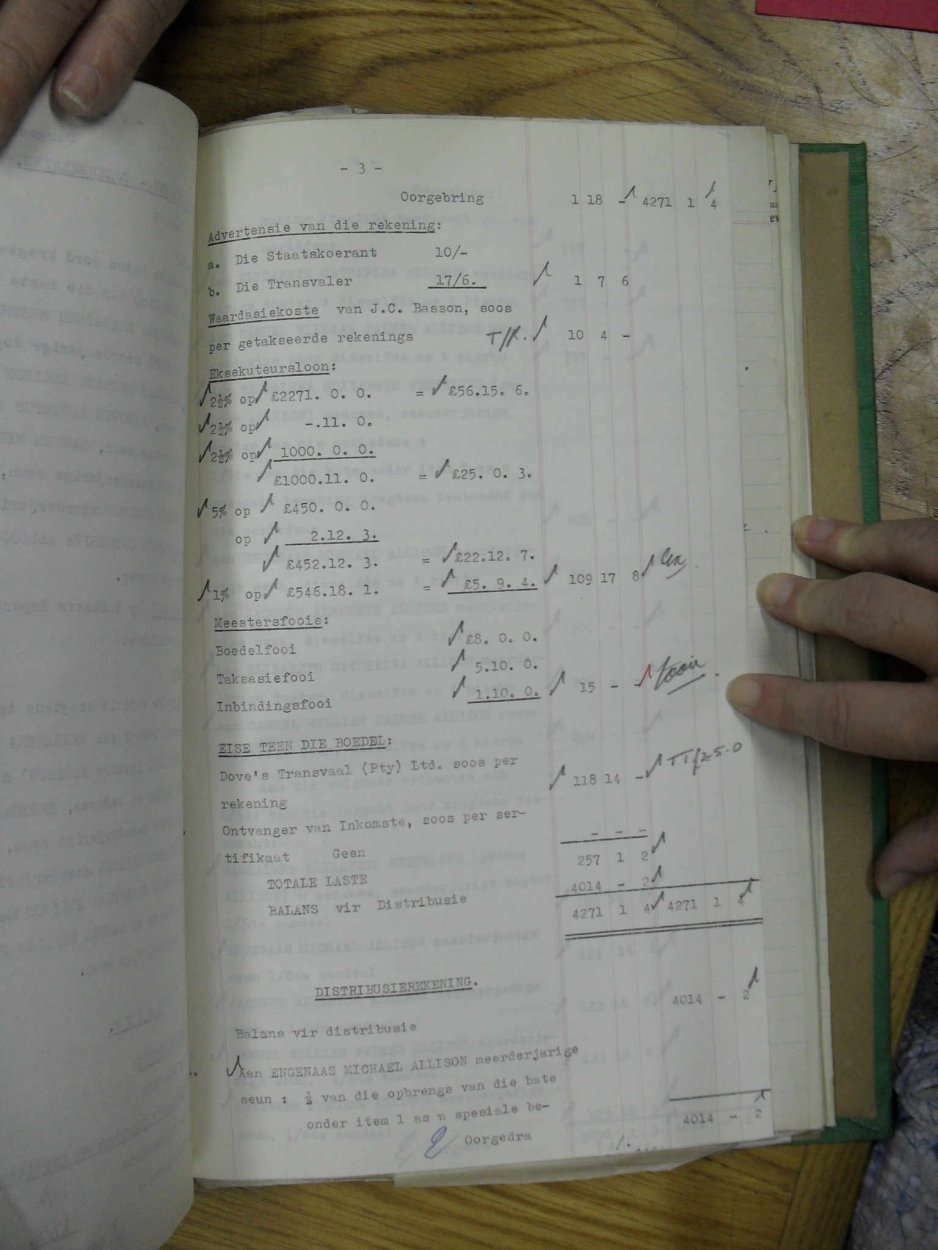 - 3 -
Oorgebring 1 18 - 4271 1 4
Advertensie van die rekening:
a. Die Staatskoerant 10/-
b. Die Transvaler 17/6. 1 7 6
Waardasiekoste van J.C. Basson, soos
per getakseerde rekenings T/R. 10 4 -
Eksekuteursloon:
2½% op £2271. 0. 0. = £56.15. 6.
2½% op -.11. 0.
2½% op 1000. 0. 0.
£1000.11. 0. = £25. 0. 3.
5% op £450. 0. 0.
op 2.12. 3.
£452.12. 3. = £22.12. 7.
1% op £546.18. 1. = £5. 9. 4. 109 17 8
Meestersfooie:
Boedelfooi £8. 0. 0.
Taksasiefooi 5.10. 0.
Inbindingsfooi 1.10. 0. 15 - - fooie
EISE TEEN DIE BOEDEL:
Dove's Transvaal (Pty) Ltd. soos per
rekening 118 14 -
Ontvanger van Inkomste, soos per ser-
tifikaat Geen - - -
TOTALE LASTE 257 1 2
BALANS vir Distribusie 4014 - 2
4271 1 4 4271 1 4
DISTRIBUSIEREKENING.
Balans vir distribusie 4014 - 2
Aan ENGENAAS MICHAEL ALLISON meerderjarige
seun : van die opbrengs van die bate
onder item 1 as n spesiale be-
Oorgedra 4014 - 2